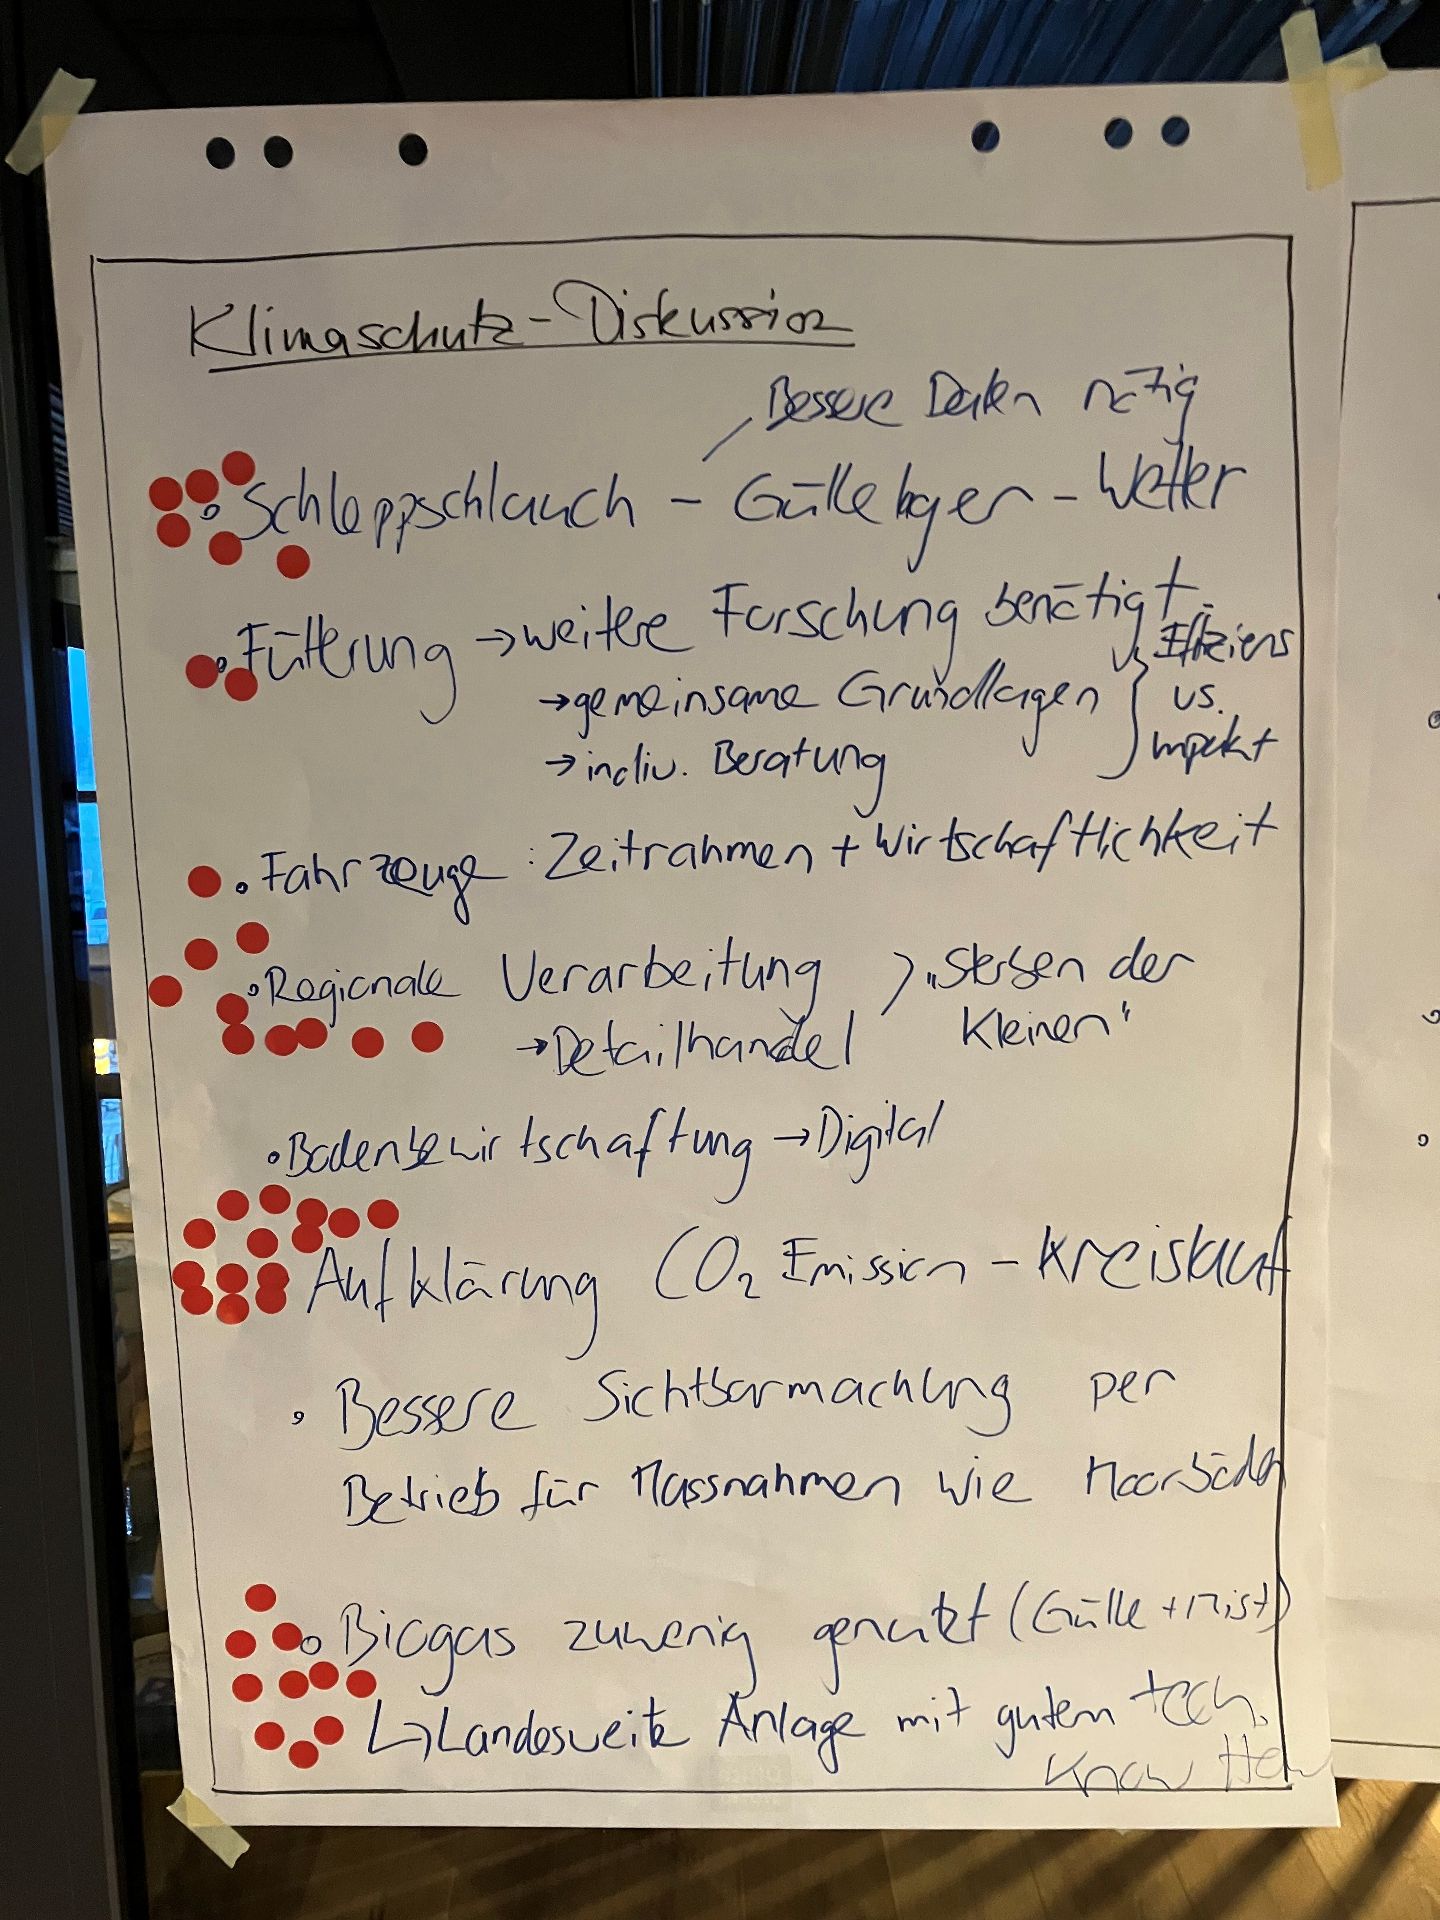 Klimaschutz-Diskussion
Bessere Daten nötig
• Schleppschlauch - Güllelager - Wetter
• Fütterung → weitere Forschung benötigt
→ gemeinsame Grundlagen
→ indiv. Beratung
} Effiziens
vs.
Impakt
• Fahrzeuge : Zeitrahmen + Wirtschaftlichkeit
• Regionale Verarbeitung > „Sterben der
→ Detailhandel Kleinen"
• Bodenbewirtschaftung → Digital
Aufklärung CO2 Emission - Kreislauf
• Bessere Sichtbarmachung per
Betrieb für Massnahmen wie Moorböden
• Biogas zuwenig genutzt (Gülle + Mist)
↳ Landesweite Anlage mit gutem tech.
Know How